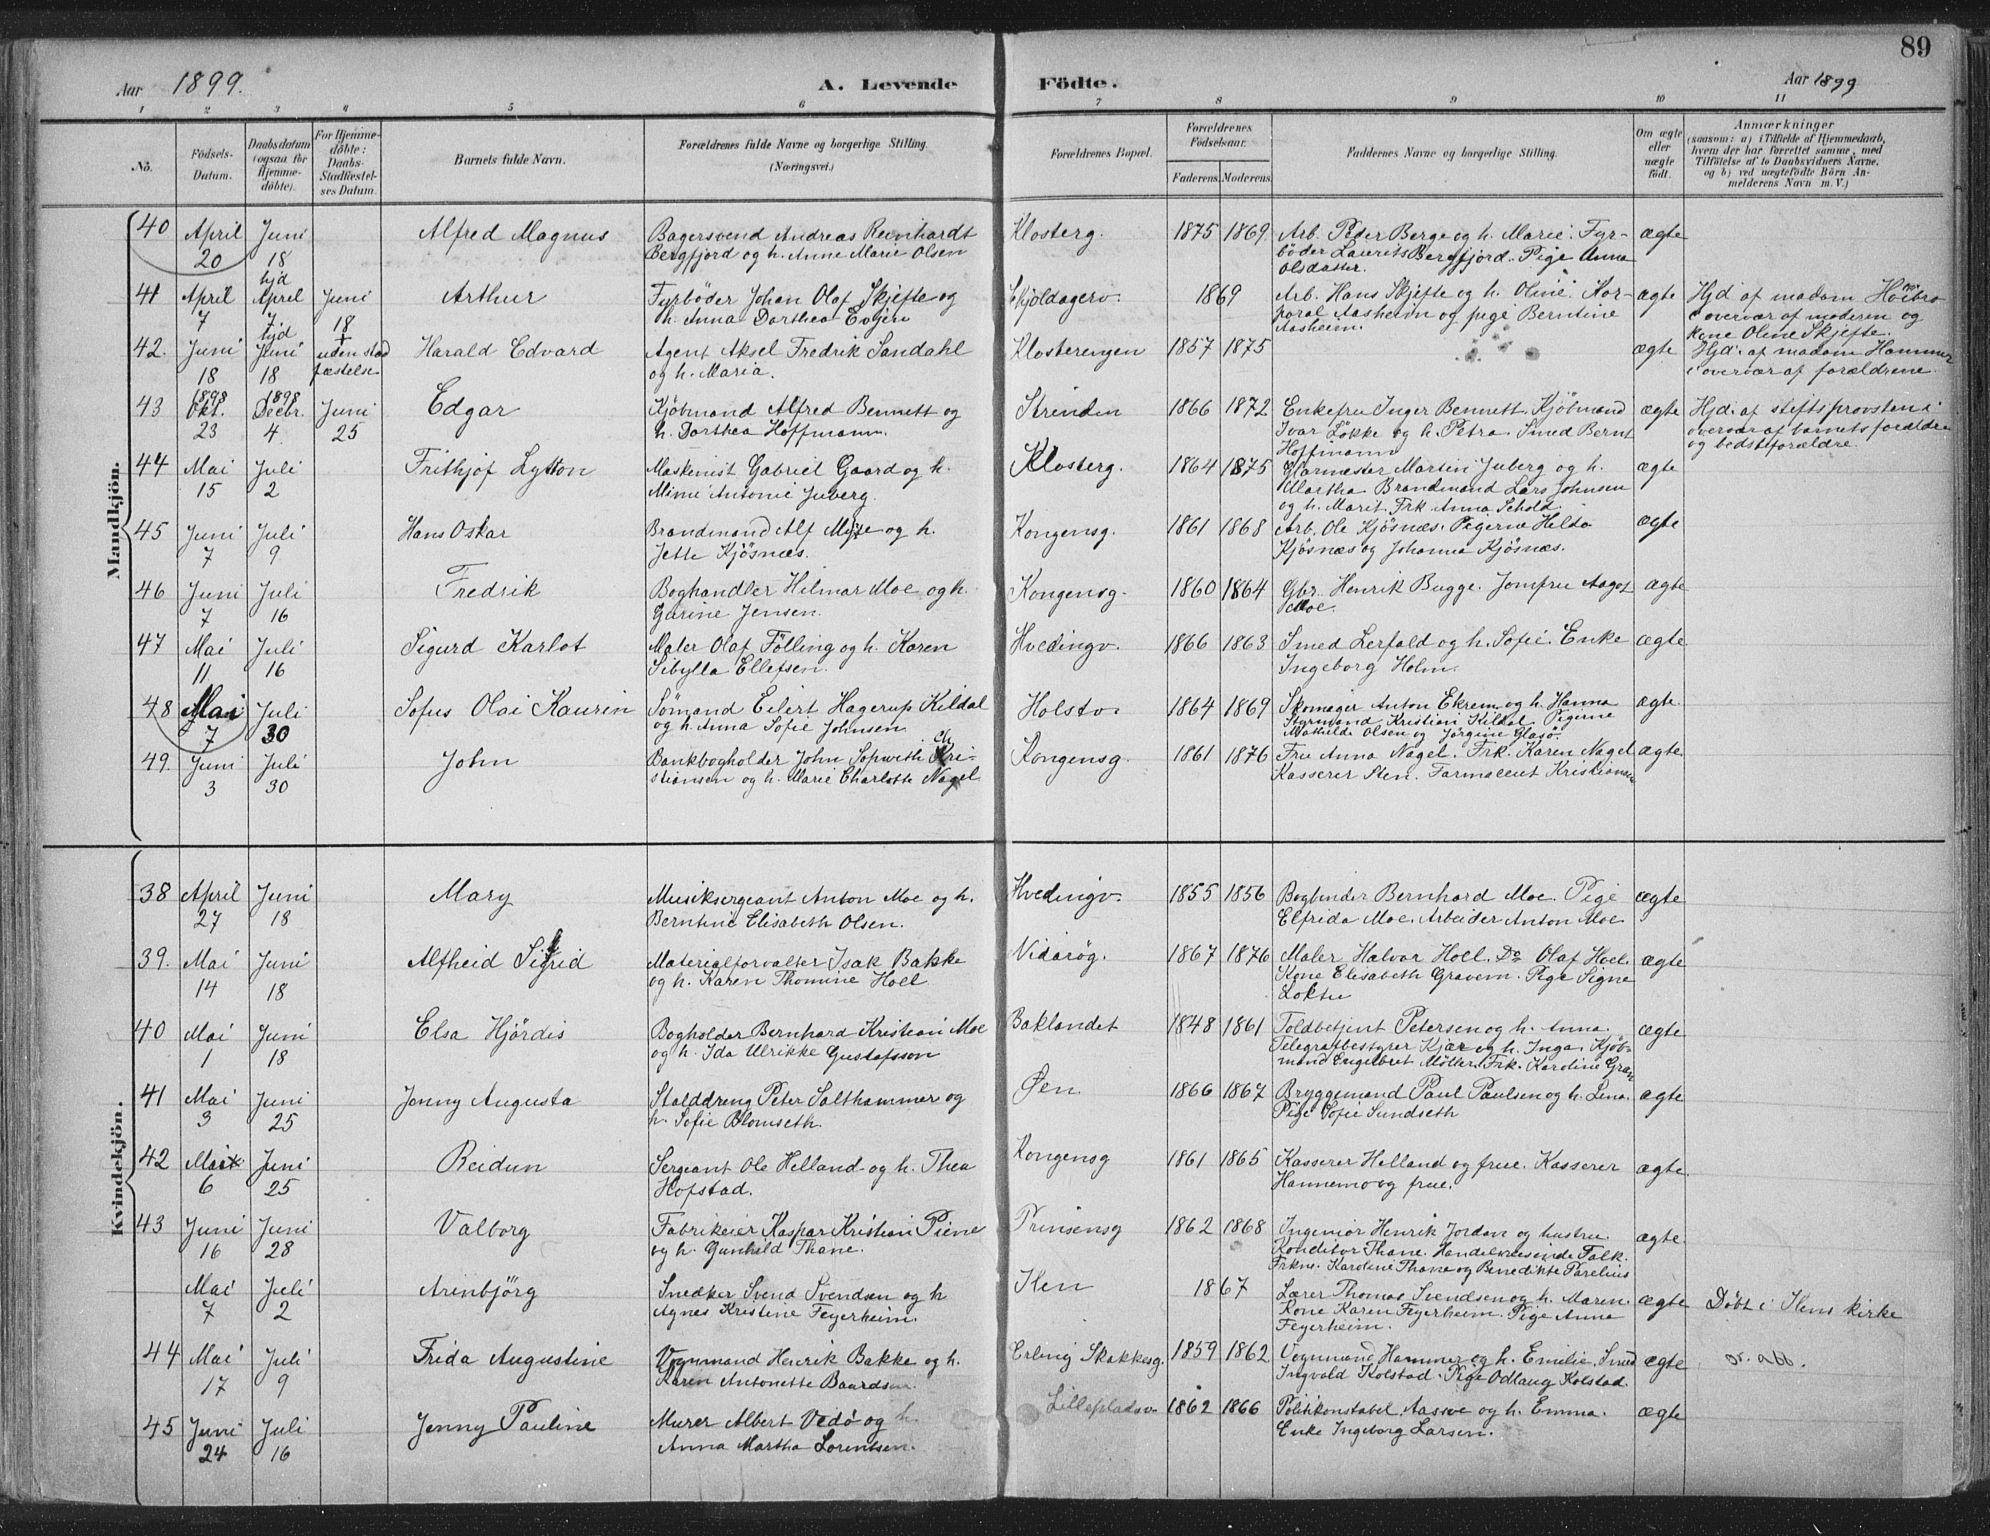 89
Aar 1899. A. Levende Födte. Aar 1899
1 2 3 4 5 6 7 8 9 10 11
No. Födsels-Datum. Daabsdatum (ogsaa for Hjemmedöbte). For Hjemmedöbte: Daabs-Stadfæstelses Datum. Barnets fulde Navn. Forældrenes fulde Navne og borgerlige Stilling. (Næringsvei.) Forældrenes Bopæl. Forældrenes Födselsaar. Faderens. Moderens. Faddernes Navne og borgerlige Stilling. Om ægte eller uægte födt. Anmærkninger (saasom: a) i Tilfælde af Hjemmedaab, hvem der har forrettet samme, med Tilföielse af to Daabsvidners Navne, og b) ved uægtefödte Börn Anmelderens Navn m. V.)
Mandkjön.
40 April 20 Juni 18 Alfred Magnus Bagersvend Andreas Reinhardt Bergfjord og h. Anne Marie Olsen Klosterg. 1875 1869 Arb. Peder Berge og h. Marie. Fyrböder Laurits Bergfjord. Pige Anna Olsdatter. ægte
41 April 7 hjd April 7 Juni 18 Arthur Fyrböder Johan Olaf Skjefte og h. Anna Dorthea Evjen Skjoldagerv. 1869 Arb. Hans Skjefte og h. Oline. Korporal Aasheim og pige Berntine Aasheim. ægte Hjd af madam Höibro i overvær af moderen og kone Oline Skjefte.
42. Juni 18 hjd Juni 18 uden stadfæstelse Harald Edvard Agent Aksel Fredrik Sandahl og h. Maria. Klosterengen 1857 1875 ægte Hjd. af madam Hammer i overvær af forældrene.
43 1898 Okt. 23 1898 Decbr. 4 Juni 25 Edgar Kjöbmand Alfred Bennett og h. Dorthea Hoffmann. Strinden 1866 1872 Enkefru Inger Bennett. Kjöbmand Ivar Lökke og h. Petra. Smed Bernt Hoffmann ægte Hjd. af stiftsprovsten i overvær af barnets forældre og bedsteforældre.
44 Mai 15 Juli 2 Frithjof Lytton Maskinist Gabriel Gaard og h. Mimi Antonie Juberg. Klosterg. 1864 1875 Glarmester Martin Juberg og h. Martha. Brandmand Lars Johnsen og h. Marit. Frk Anna Schold. ægte
45 Juni 7 Juli 9 Hans Oskar Brandmand Alf Moe og h. Jette Kjösnæs. Kongensg. 1861 1868 Arb. Ole Kjösnæs. Pigerne Hilda Kjösnæs og Johanna Kjösnæs. ægte
46 Juni 7 Juli 16 Fredrik Boghandler Hilmar Moe og h. Garine Jensen. Kongensg. 1860 1864 Gbr. Henrik Bugge. Jomfru Aagot Moe. ægte
47 Mai 11 Juli 16 Sigurd Karlot Maler Olaf Fölling og h. Karen Sibylla Ellefsen. Hvedingv. 1866 1863 Smed Lerfald og h. Sofie. Enke Ingeborg Holm. ægte
48 Mai 7 Juli 30 Sofus Olai Kaurin Sömand Eilert Hagerup Kildal og h. Anna Sofie Johnsen. Holstv. 1864 1869 Skomager Anton Ekrem og h. Hanna Styrmand Kristian Kildal. Pigerne Mathilde Olsen og Jörgine Glasö. ægte.
49. Juni 3 Juli 30 John Bankbogholder John Sopwith Christiansen og h. Marie Charlotte Nagel Kongensg. 1861 1876 Fru Anna Nagel. Frk. Karen Nagel Kasserer Sten. Farmaceut Kristiansen ægte.
Kvindekjön.
38 April 27 Juni 18 Mary Musiksergeant Anton Moe og h. Berntine Elisabeth Olsen. Hvedingv. 1855 1856 Bogbinder Bernhard Moe. Pige Elfrida Moe. Arbeider Anton Moe. ægte
39. Mai 14 Juni 18 Alfheid Sigrid Materialforvalter Isak Bakke og h. Karen Thomine Hoel Vidarög. 1867 1876 Maler Halvor Hoel. Do Olaf Hoel. Kone Elisabeth Gravem. Pige Signe Loktu ægte
40 Mai 1 Juni 18 Elsa Hjördis Bogholder Bernhard Kristian Moe og h. Ida Ulrikke Gustafsson Baklandet 1848 1861 Toldbetjent Petersen og h. Anna. Telegrafbestyrer Kjær og h. Inga. Kjöbmand Engelbret Möller. Frk. Karoline Gran ægte
41 Mai 3 Juni 25 Jenny Augusta Stalddreng Peter Salthammer og h. Sofie Blomseth. Øen. 1866 1867 Bryggemand Paul Paulsen og h. Lena. Pige Sofie Sundseth ægte
42 Mai 6 Juni 25 Reidun Sergeant Ole Helland og h. Thea Hofstad. Kongensg 1861 1865 Kasserer Helland og frue. Kasserer Hannemo og frue. ægte
43 Juni 16 Juni 28 Valborg Fabrikeier Kaspar Kristian Piene og h. Gunhild Thane. Prinsensg 1862 1868 Ingeniör Henrik Jordan og hustru. Konditor Thane. Handelsreisende Falk. Frkns. Karoline Thane og Benedikte Parelius ægte.
Mai 7 Juli 2 Arinbjörg Snedker Svend Svendsen og h Agnes Kristine Feyerheim. Ilen 1867 Lærer Thomas Svendsen og h. Maren. Kone Karen Feyerheim. Pige Anna Feyerheim. ægte Döbt i Ilens kirke
44 Mai 17 Juli 9 Frida Augustine Vognmand Henrik Bakke og h. Karen Antonette Baardsen. Erling Skakkesg. 1859 1862 Vognmand Hammer og h. Emilie. Smed Ingvald Kolstad. Pige Odlaug Kolstad. ægte
45 Juni 24 Juli 16 Jenny Pauline Murer Albert Vedö og h. Anna Martha Lorentsen. Lillepladsv. 1862 1866 Politikonstabel Aasve og h. Emma. Enke Ingeborg Larsen. ægte